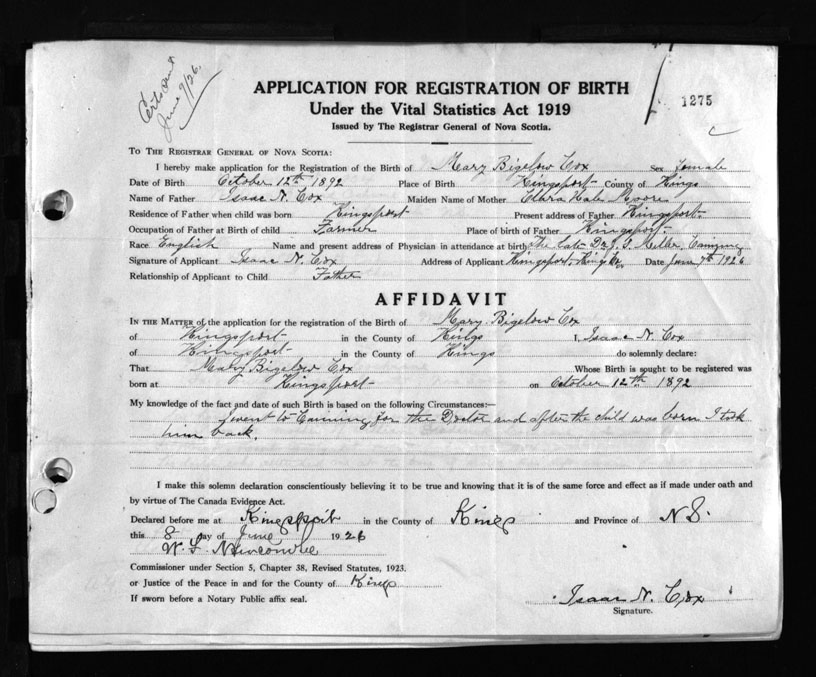 Certs sent
June 9/26.
1275
APPLICATION FOR REGISTRATION OF BIRTH
Under the Vital Statistics Act 1919
Issued by The Registrar General of Nova Scotia.
TO THE REGISTRAR GENERAL OF NOVA SCOTIA:
I hereby make application for the Registration of the Birth of Mary Bigelow Cox Sex Female
Date of Birth October 12th 1892 Place of Birth Kingsport County of Kings
Name of Father Isaac N. Cox Maiden Name of Mother Clara Kate Moore
Residence of Father when child was born Kingsport Present address of Father Kingsport.
Occupation of Father at Birth of child Farmer Place of birth of Father Kingsport.
Race English Name and present address of Physician in attendance at birth The late Dr. Miller, Canning
Signature of Applicant Isaac N. Cox Address of Applicant Kingsport, Kings Co Date June 7th 1926
Relationship of Applicant to Child Father
AFFIDAVIT
IN THE MATTER of the application for the registration of the Birth of Mary Bigelow Cox
of Kingsport in the County of Kings I, Isaac N. Cox
of Kingsport in the County of Kings do solemnly declare:
That Mary Bigelow Cox Whose Birth is sought to be registered was
born at Kingsport on October 12th 1892
My knowledge of the fact and date of such Birth is based on the following Circumstances:—
I went to Canning for the Doctor and after the child was born I took
him back.
I make this solemn declaration conscientiously believing it to be true and knowing that it is of the same force and effect as if made under oath and
by virtue of The Canada Evidence Act.
Declared before me at Kingsport in the County of Kings and Province of N S.
this 8 day of June 1926
Commissioner under Section 5, Chapter 38, Revised Statutes, 1923.
or Justice of the Peace in and for the County of Kings
If sworn before a Notary Public affix seal.
Isaac N. Cox
Signature.